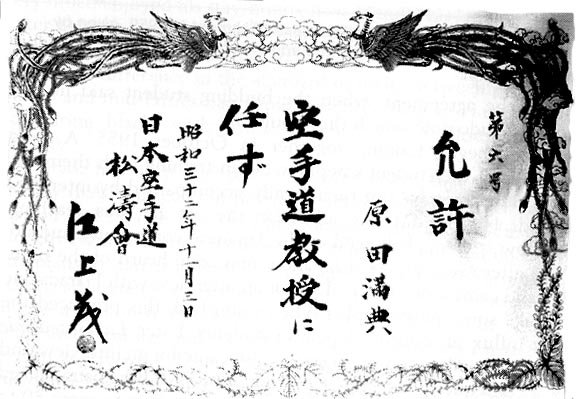 第六号
允許
原田満典
空手道教授に
任ず
昭和三十二年十月三日
日本空手道
松濤會
江上茂